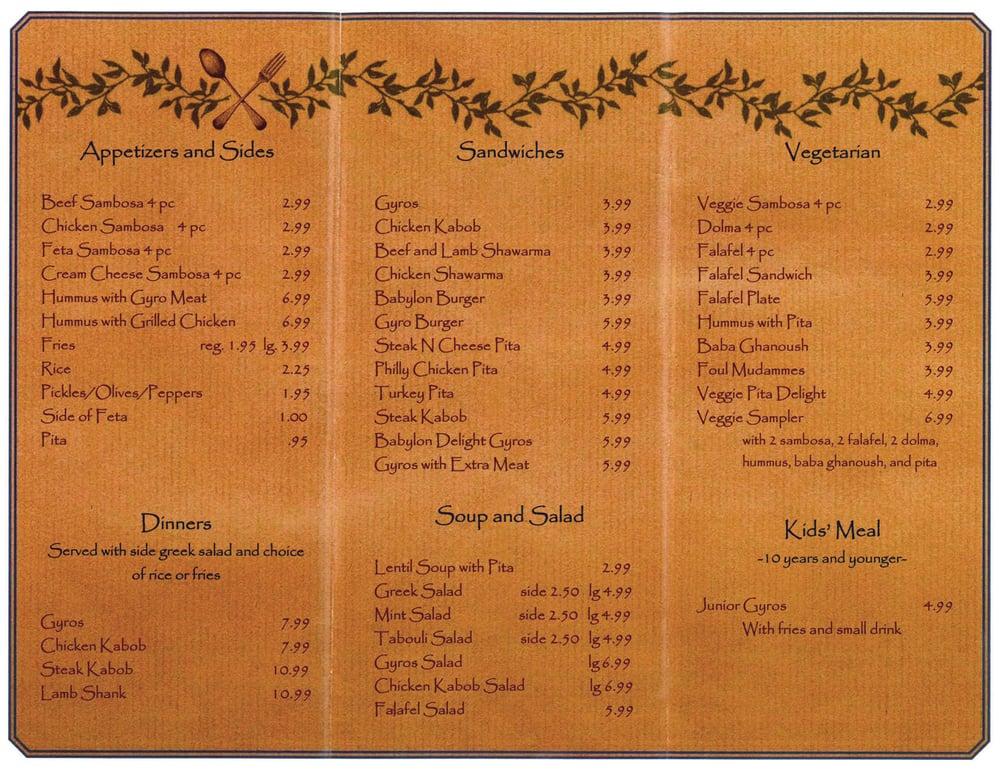 Appetizers and Sides
Beef Sambosa 4 pc 2.99
Chicken Sambosa 4 pc 2.99
Feta Sambosa 4 pc 2.99
Cream Cheese Sambosa 4 pc 2.99
Hummus with Gyro Meat 6.99
Hummus with Grilled Chicken 6.99
Fries reg. 1.95 lg. 3.99
Rice 2.25
Pickles/Olives/Peppers 1.95
Side of Feta 1.00
Pita .95
Dinners
Served with side greek salad and choice
of rice or fries
Gyros 7.99
Chicken Kabob 7.99
Steak Kabob 10.99
Lamb Shank 10.99
Sandwiches
Gyros 3.99
Chicken Kabob 3.99
Beef and Lamb Shawarma 3.99
Chicken Shawarma 3.99
Babylon Burger 3.99
Gyro Burger 5.99
Steak N Cheese Pita 4.99
Philly Chicken Pita 4.99
Turkey Pita 4.99
Steak Kabob 5.99
Babylon Delight Gyros 5.99
Gyros with Extra Meat 5.99
Soup and Salad
Lentil Soup with Pita 2.99
Greek Salad side 2.50 lg 4.99
Mint Salad side 2.50 lg 4.99
Tabouli Salad side 2.50 lg 4.99
Gyros Salad lg 6.99
Chicken Kabob Salad lg 6.99
Falafel Salad 5.99
Vegetarian
Veggie Sambosa 4 pc 2.99
Dolma 4 pc 2.99
Falafel 4 pc 2.99
Falafel Sandwich 3.99
Falafel Plate 5.99
Hummus with Pita 3.99
Baba Ghanoush 3.99
Foul Mudammes 3.99
Veggie Pita Delight 4.99
Veggie Sampler 6.99
with 2 sambosa, 2 falafel, 2 dolma,
hummus, baba ghanoush, and pita
Kids' Meal
-10 years and younger-
Junior Gyros 4.99
With fries and small drink